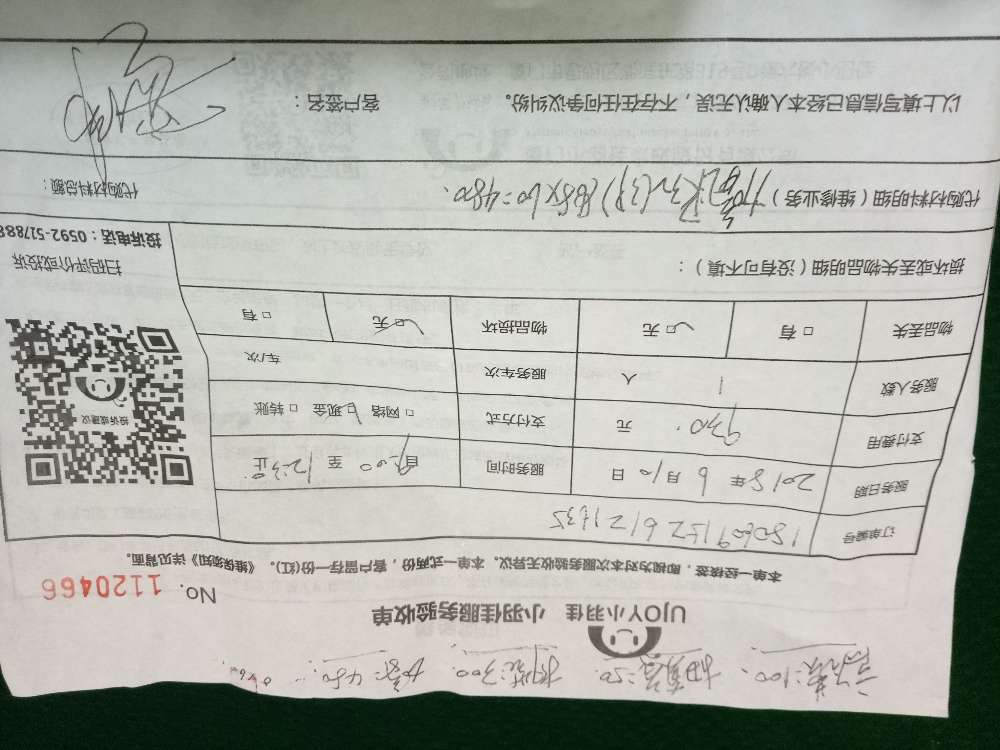 高次费:100. 扣真空:50. 拆装:300. 加雪:480.
UJOY小羽佳 小羽佳服务验收单
No. 1120466
本单一经接签,即视为对本次服务验收无异议。本单一式两份,客户留存一份(红)。《维保须知》详见背面。
订单编号
服务日期 2018年 6月10日 服务时间 自9:00至12:30止
支付费用 930. 元 支付方式 □网络 □现金 □转账
服务人数 1 人 服务车次 车/次
物品丢失 □有 □无 物品损坏 □无 □有
投诉或建议
扫码评价或投诉
投诉电话:0592-517888
损坏或丢失物品明细(没有可不填):
代购材料明细(维修业务)
代购材料总额:
以上填写信息已经本人确认无误,不存在任何争议纠纷。 客户签名: